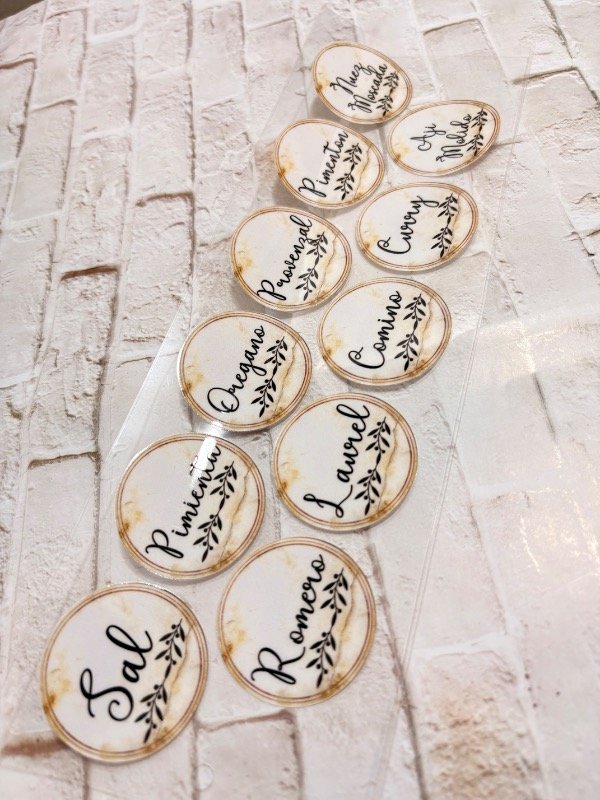 Nuez
Moscada
Ají
Molido
Pimentón
Curry
Provenzal
Comino
Oregano
Laurel
Pimienta
Romero
Sal